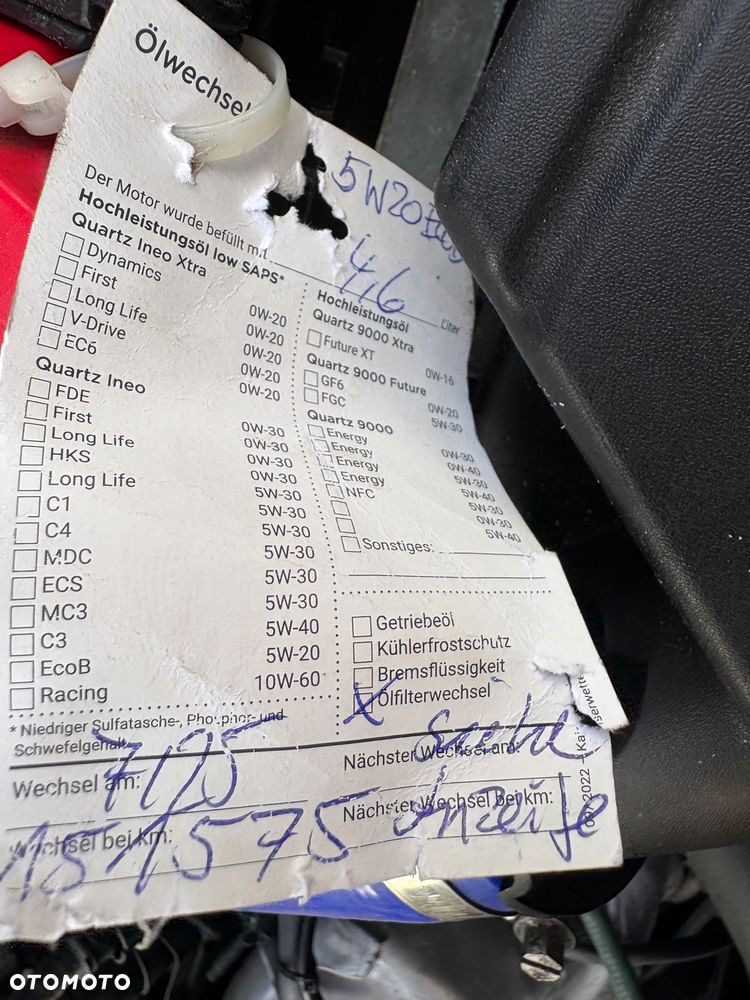 Ölwechsel
5W20 EcoB
Der Motor wurde befüllt mit 4,6 Liter
Hochleistungsöl low SAPS*
Quartz Ineo Xtra
Dynamics 0W-20
First 0W-20
Long Life 0W-20
V-Drive 0W-20
EC6 0W-20
Quartz Ineo
FDE 0W-30
First 0W-30
Long Life 0W-30
HKS 0W-30
Long Life 5W-30
C1 5W-30
C4 5W-30
MDC 5W-30
ECS 5W-30
MC3 5W-30
C3 5W-40
EcoB 5W-20
Racing 10W-60
* Niedriger Sulfatasche-, Phosphor- und
Schwefelgehalt
Hochleistungsöl
Quartz 9000 Xtra
Future XT 0W-16
Quartz 9000 Future
GF6 0W-20
FGC 5W-30
Quartz 9000
Energy 0W-30
Energy 0W-40
Energy 5W-30
Energy 5W-40
NFC 5W-30
0W-30
5W-40
Sonstiges:
Getriebeöl
Kühlerfrostschutz
Bremsflüssigkeit
X Ölfilterwechsel
Wechsel am: 7/25
Wechsel bei km: 151575
Nächster Wechsel am: Siehe
Nächster Wechsel bei km: Anzeige
OTOMOTO